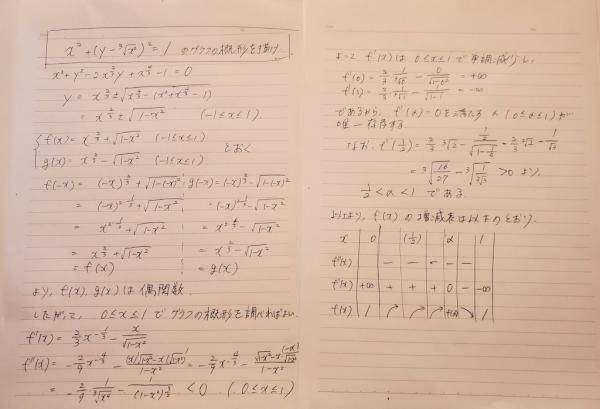 x² + (y - ³√x²)² = 1 のグラフの概形を描け.
x² + y² - 2x^(2/3)y + x^(4/3) - 1 = 0
y = x^(2/3) ± √(x^(4/3) - (x² + x^(4/3) - 1))
= x^(2/3) ± √(1-x²) (-1≤x≤1).
{ f(x) = x^(2/3) + √(1-x²) (-1≤x≤1)
g(x) = x^(2/3) - √(1-x²) (-1≤x≤1) とおく
f(-x) = (-x)^(2/3) + √(1-(-x)²) g(-x) = (-x)^(2/3) - √(1-(-x)²)
= (-x)^(2·1/3) + √(1-x²) = (-x)^(2·1/3) - √(1-x²)
= x^(2·1/3) + √(1-x²) = x^(2·1/3) - √(1-x²)
= x^(2/3) + √(1-x²) = x^(2/3) - √(1-x²)
= f(x) = g(x)
より, f(x), g(x) は 偶関数.
したがって, 0≤x≤1 で グラフの概形を調べればよい.
f'(x) = 2/3 x^(-1/3) - x/√(1-x²)
f''(x) = -2/9 x^(-4/3) - ((x)'√(1-x²) - x(√(1-x²))')/(1-x²) = -2/9 x^(-4/3) -
= -2/9 · 1/³√x⁴ - 1/(1-x²)^(3/2) < 0 (0≤x≤1)
よって f'(x) は 0≤x≤1 で 単調減少し,
f'(0) = 2/3 · 1/³√0 - 0/√(1-0²) = +∞
f'(1) = 2/3 · 1/³√1 - 1/√(1-1) = -∞
であるから, f'(α) = 0 を満たす α (0≤α≤1) が
唯一存在する.
なお, f'(1/2) = 2/3 ³√2 - (1/2)/√(1-1/4) = 2/3 ³√2 - 1/√3
= ³√(16/27) - ³√(1/(3√3)) > 0 より,
1/2 < α < 1 である
以上より, f(x) の増減表は以下のとおり.
x 0 (1/2) α 1
f''(x) - - - - -
f'(x) +∞ + + + 0 - -∞
f(x) 1 f(α) 1